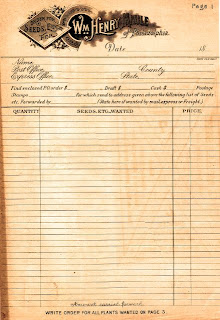 Page 1
SEEDS,
WM HENRY MAULE
of Philadelphia.
Date 18
Name
Post Office, County
Express Office, State,
Find enclosed P.O. order $ Draft $ Cash $ Postage
Stamps for which send to address given above the following list of Seeds
etc. Forwarded by (State here if wanted by mail, express or freight.)
QUANTITY SEEDS, ETC., WANTED PRICE
Amount carried forward
WRITE ORDER FOR ALL PLANTS WANTED ON PAGE 3